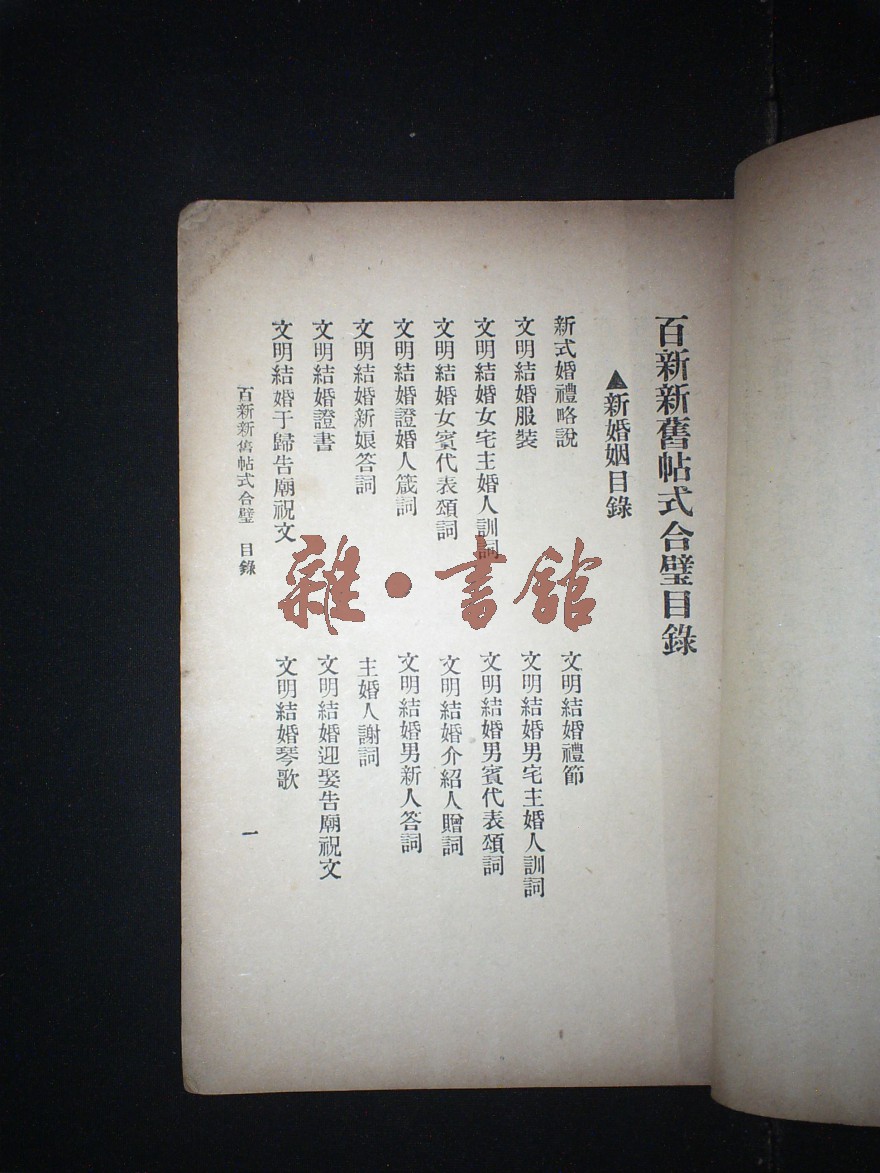 百新新舊帖式合璧目錄
▲新婚姻目錄
新式婚禮略說
文明結婚禮節
文明結婚服裝
文明結婚男宅主婚人訓詞
文明結婚女宅主婚人訓詞
文明結婚男賓代表頌詞
文明結婚女賓代表頌詞
文明結婚介紹人贈詞
文明結婚證婚人箴詞
文明結婚男新人答詞
文明結婚新娘答詞
主婚人謝詞
文明結婚證書
文明結婚迎娶告廟祝文
文明結婚于歸告廟祝文
文明結婚琴歌
百新新舊帖式合璧 目錄
一
雜·書館